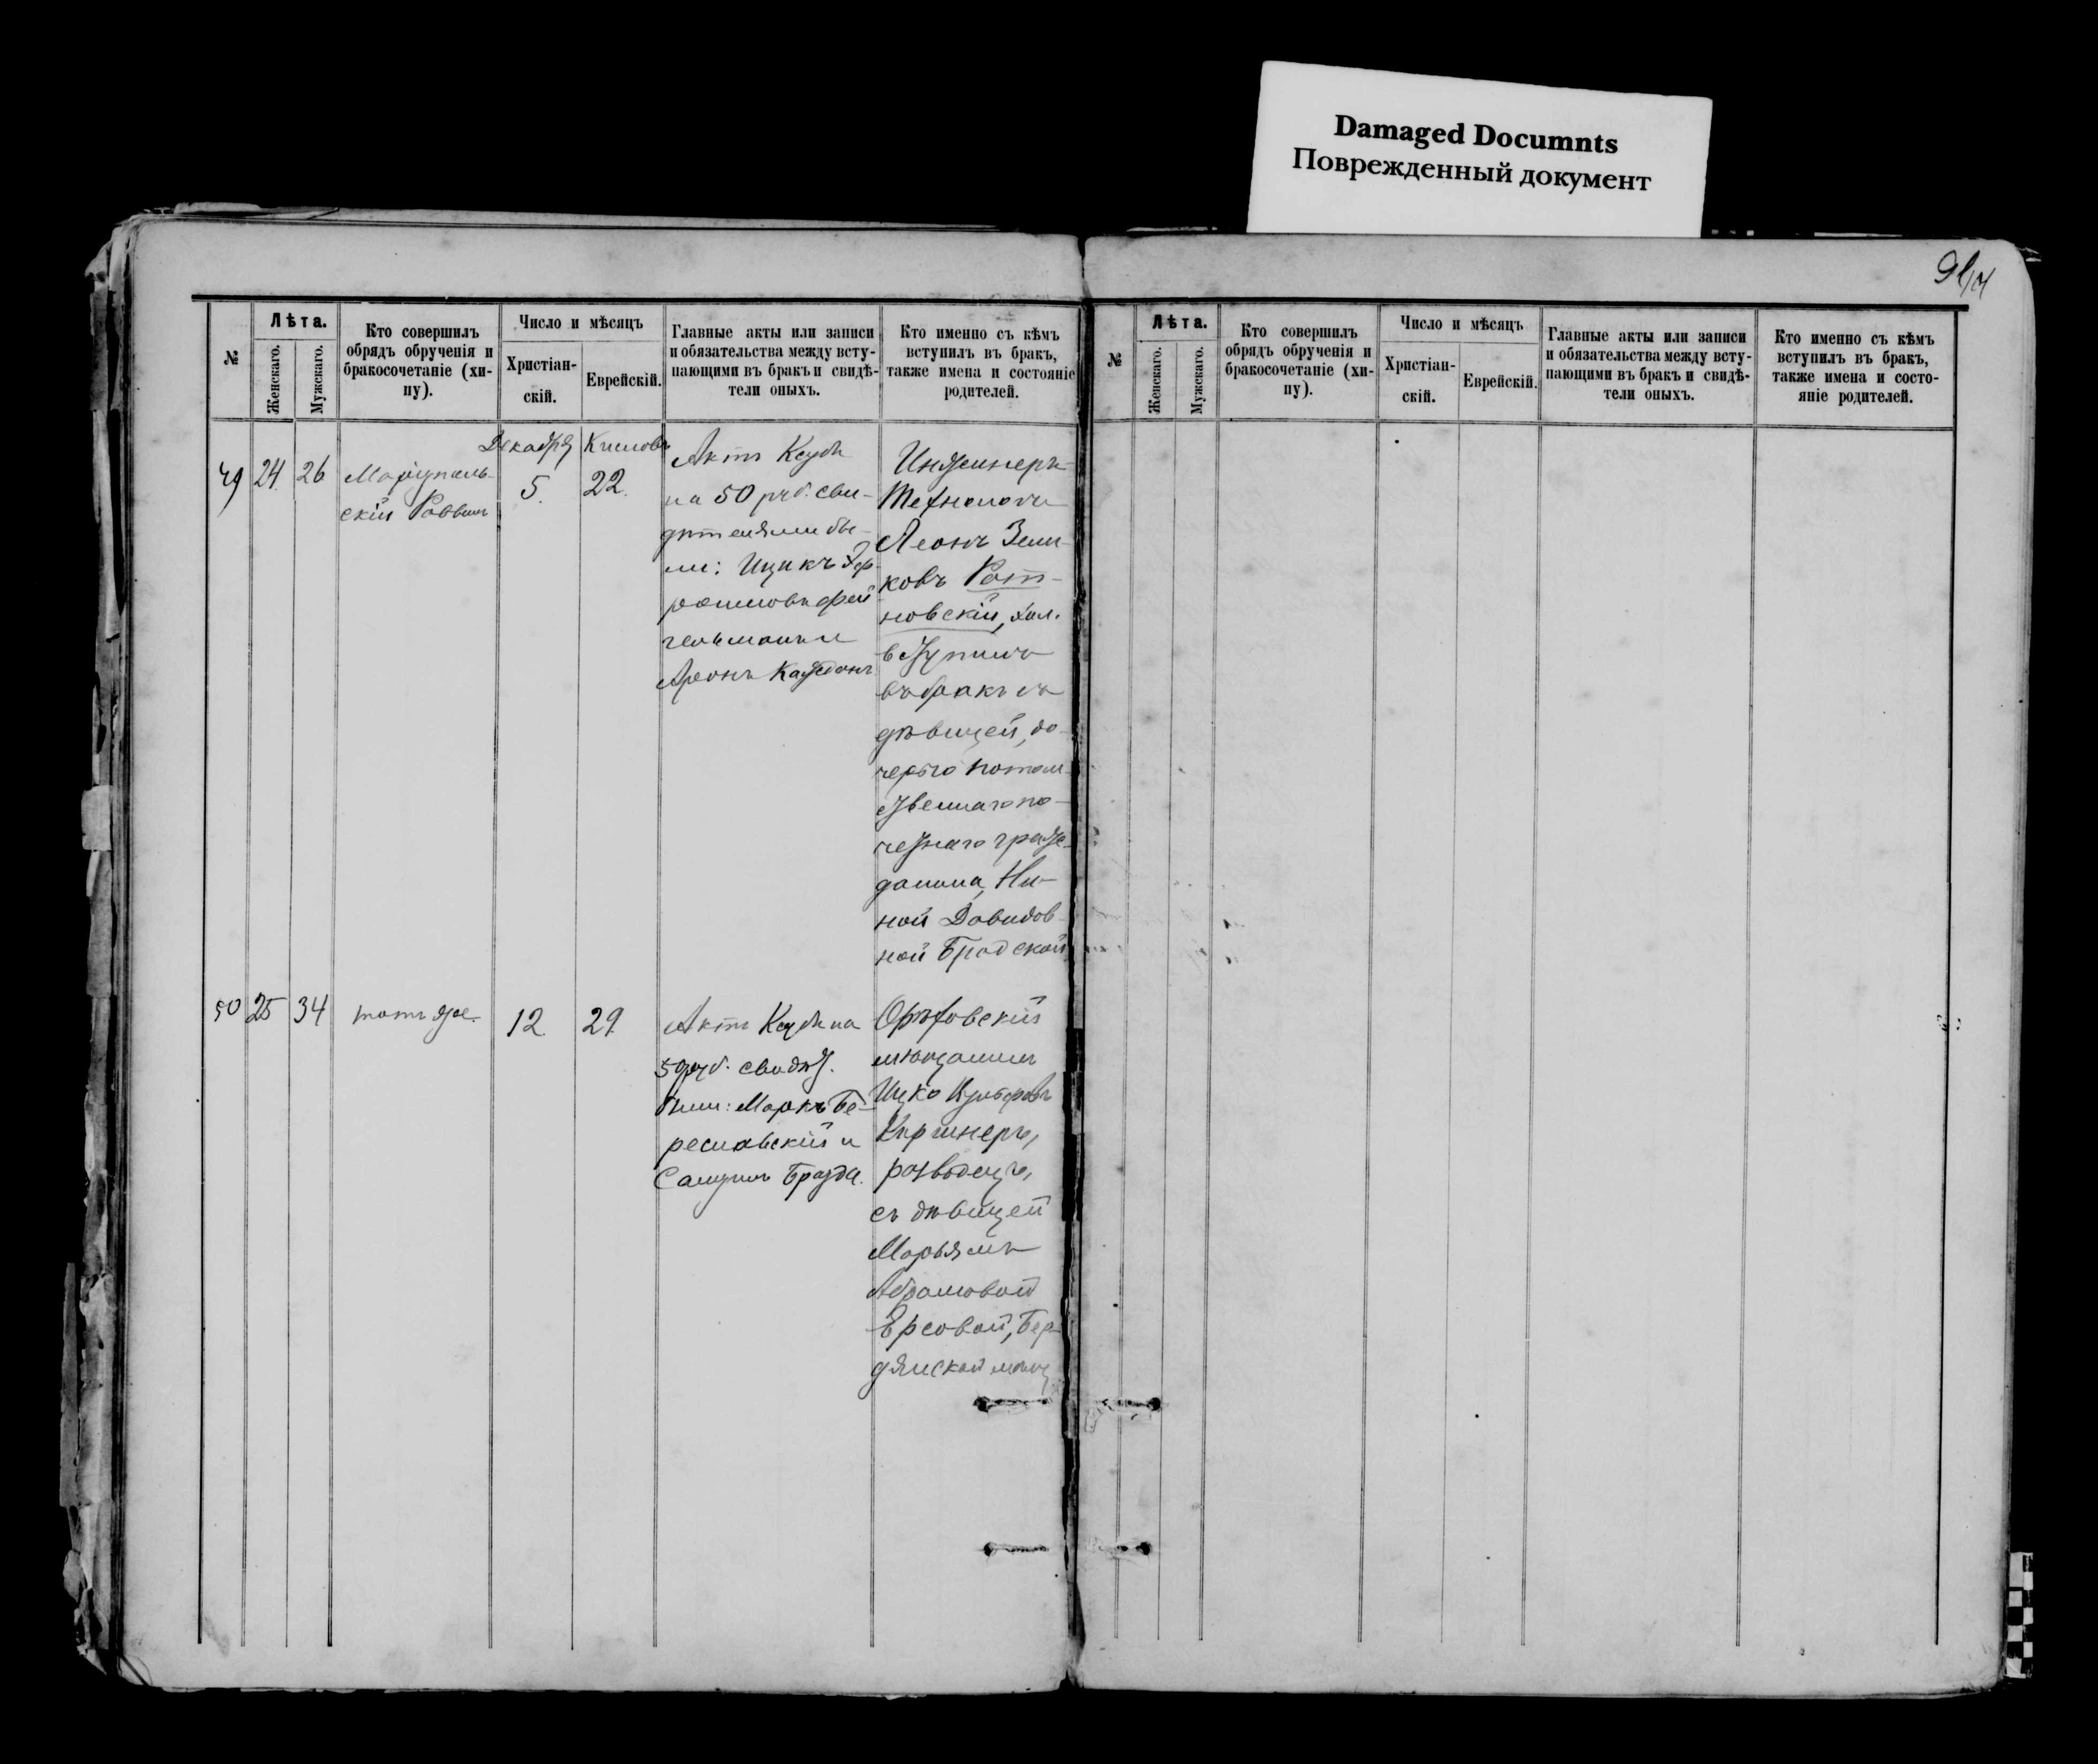 Damaged Documnts
Поврежденный документ
№
Лѣта.
Женскаго.
Мужскаго.
Кто совершилъ
обрядъ обрученія и
бракосочетаніе (хи-
пу).
Число и мѣсяцъ
Христіан-
скій.
Еврейскій.
Главные акты или записи
и обязательства между всту-
пающими въ бракъ и свидѣ-
тели оныхъ.
Кто именно съ кѣмъ
вступилъ въ бракъ,
также имена и состояніе
родителей.
49
24
26
Маріуполь-
скій Раввинъ
Декабря
5.
Кислевъ
22.
Актъ Ксуби
на 50 руб. сви-
дѣтелями бы-
ли: Ицикъ
Аронъ
Инженеръ-
Технологъ
Леонъ Зели-
ковъ Рот-
новскій, хол.
вступилъ
въ бракъ съ
дѣвицей, до-
черью потом-
ственнаго по-
четнаго граж-
данина, Ни-
ной Давидов-
ной Бродской
50
25
34
тотъ же.
12.
29.
Актъ Ксуби на
50 руб. свидѣт.
были: Маркъ Бе-
реславскій и
Самуилъ Бразда.
Орѣховскій
мѣщанинъ
Ицко
Киршнеръ,
разводецъ,
съ дѣвицей
Марьямъ
Абрамовой
Ерсовой, Бер-
дянской мѣщ
№
Лѣта.
Женскаго.
Мужскаго.
Кто совершилъ
обрядъ обрученія и
бракосочетаніе (хи-
пу).
Число и мѣсяцъ
Христіан-
скій.
Еврейскій.
Главные акты или записи
и обязательства между всту-
пающими въ бракъ и свидѣ-
тели оныхъ.
Кто именно съ кѣмъ
вступилъ въ бракъ,
также имена и состо-
яніе родителей.